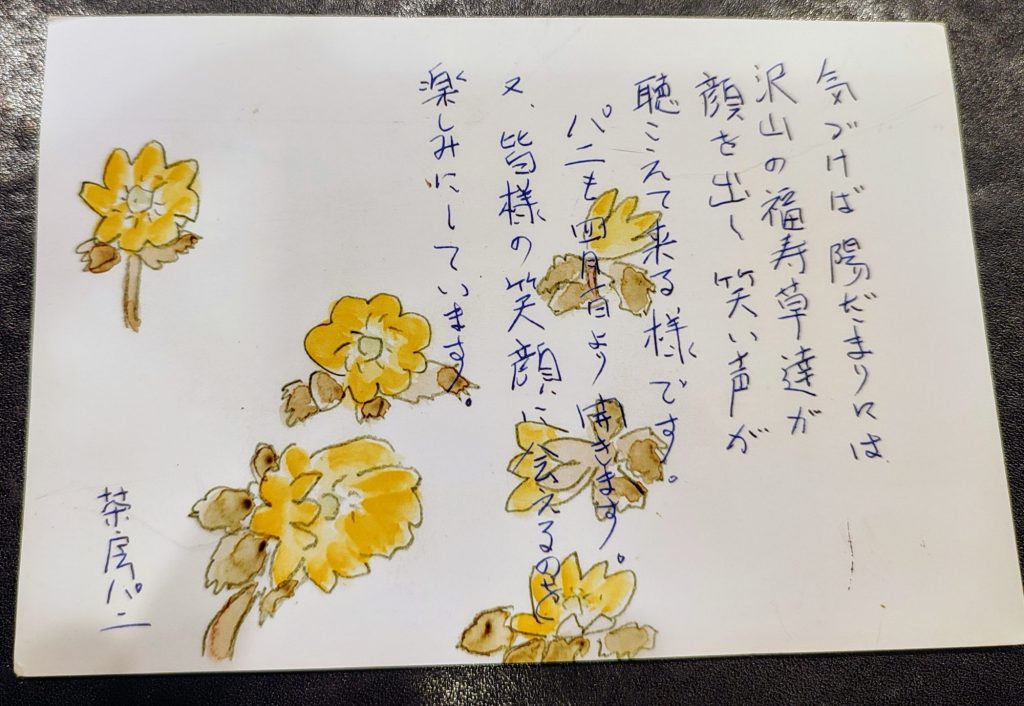 気づけば陽だまりには
沢山の福寿草達が
顔を出し笑い声が
聴こえて来る様です。
パニも四月一日より開きます。
又、皆様の笑顔に会えるのを
楽しみにしています。
茶房パニ